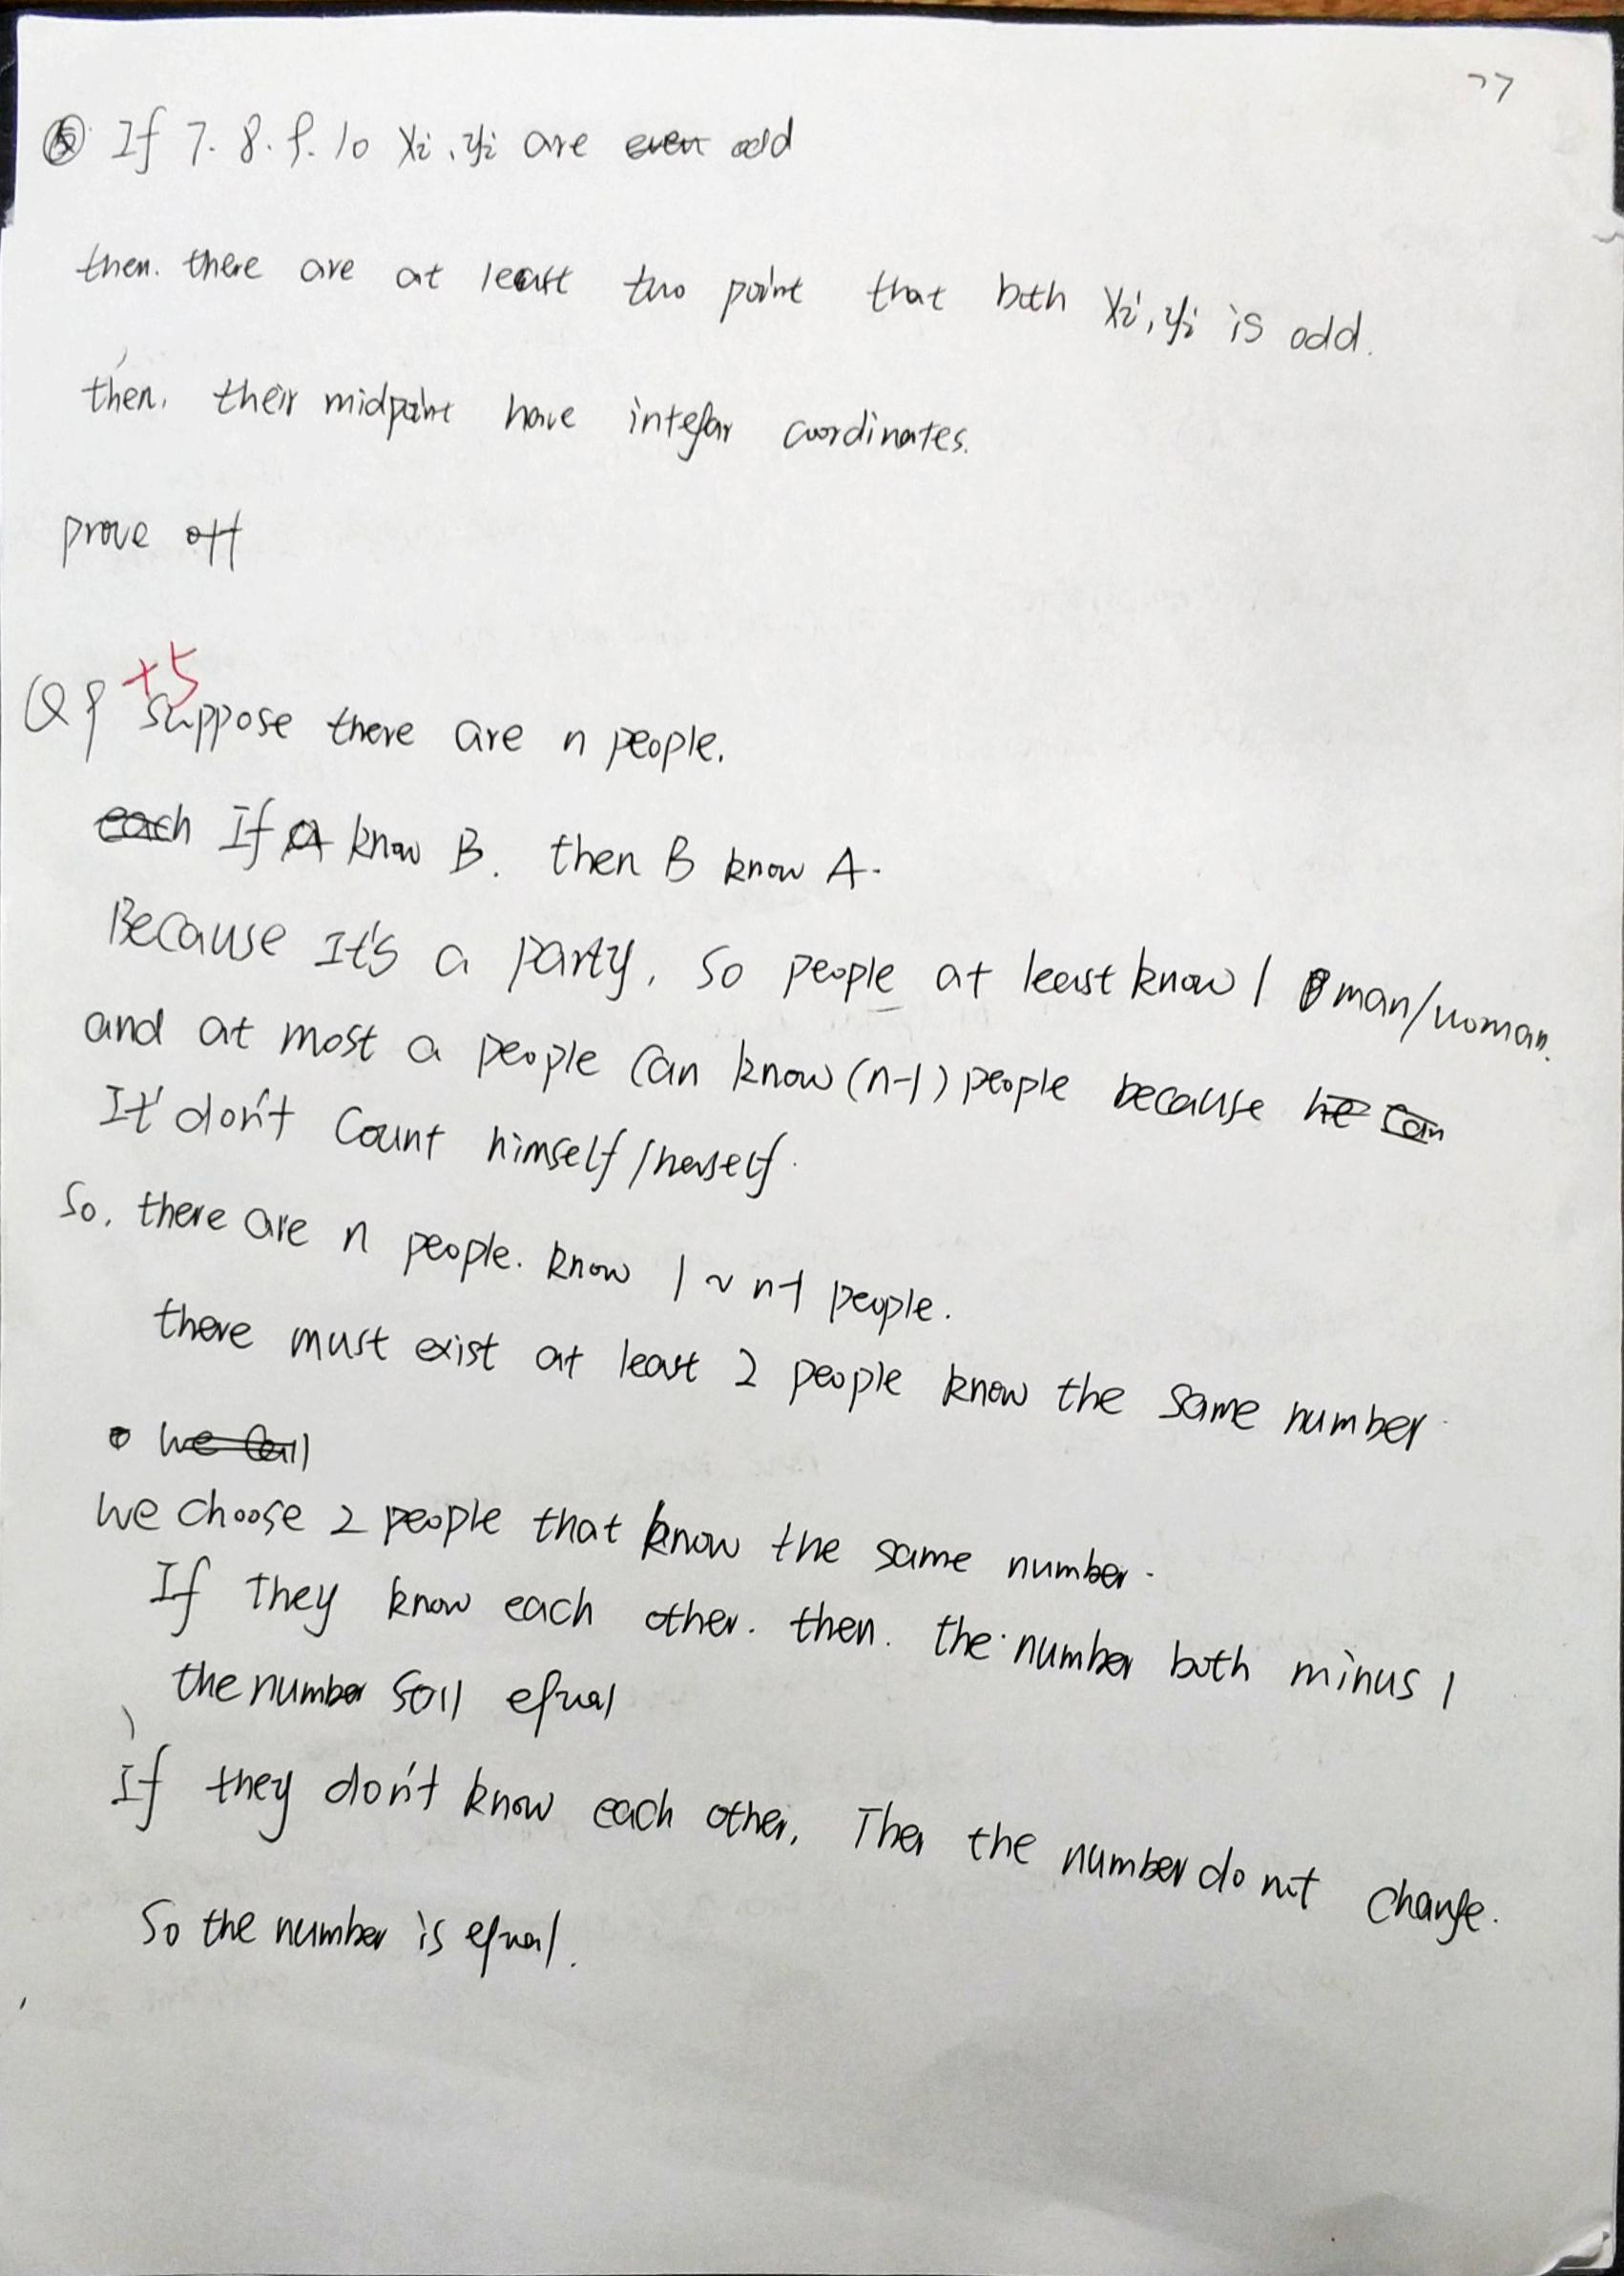 77
⑤ If 7. 8. 9. 10 xi, yi are even odd
then. there are at least two point that both xi, yi is odd.
then. their midpoint have integar coordinates.
prove off
+5
Q9 Suppose there are n people.
each If A know B. then B know A.
Because It's a party, so people at least know 1 man/woman.
and at most a people can know (n-1) people because he can
It' don't count himself/herself.
So. there are n people. know 1 ~ n-1 people.
there must exist at least 2 people know the same number.
we call
we choose 2 people that know the same number.
If they know each other. then. the number both minus 1
the number equal
If they don't know each other, Then the number do not change.
So the number is equal.